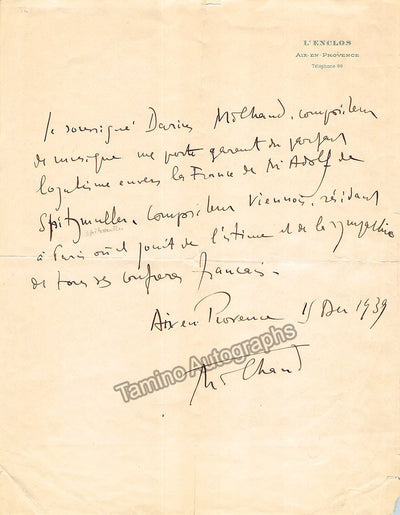 L'ENCLOS
AIX-EN-PROVENCE
Téléphone 99
Je soussigné Darius Milhaud, compositeur
de musique me porte garant du parfait
loyalisme envers la France de Mr Adolf de
Spitzmuller, compositeur Viennois, résidant
Spitzmuller
à Paris où il jouit de l'estime et de la sympathie
de tous ses confrères français.
Aix en Provence 15 Dec 1939
Milhaud
Tamino Autographs